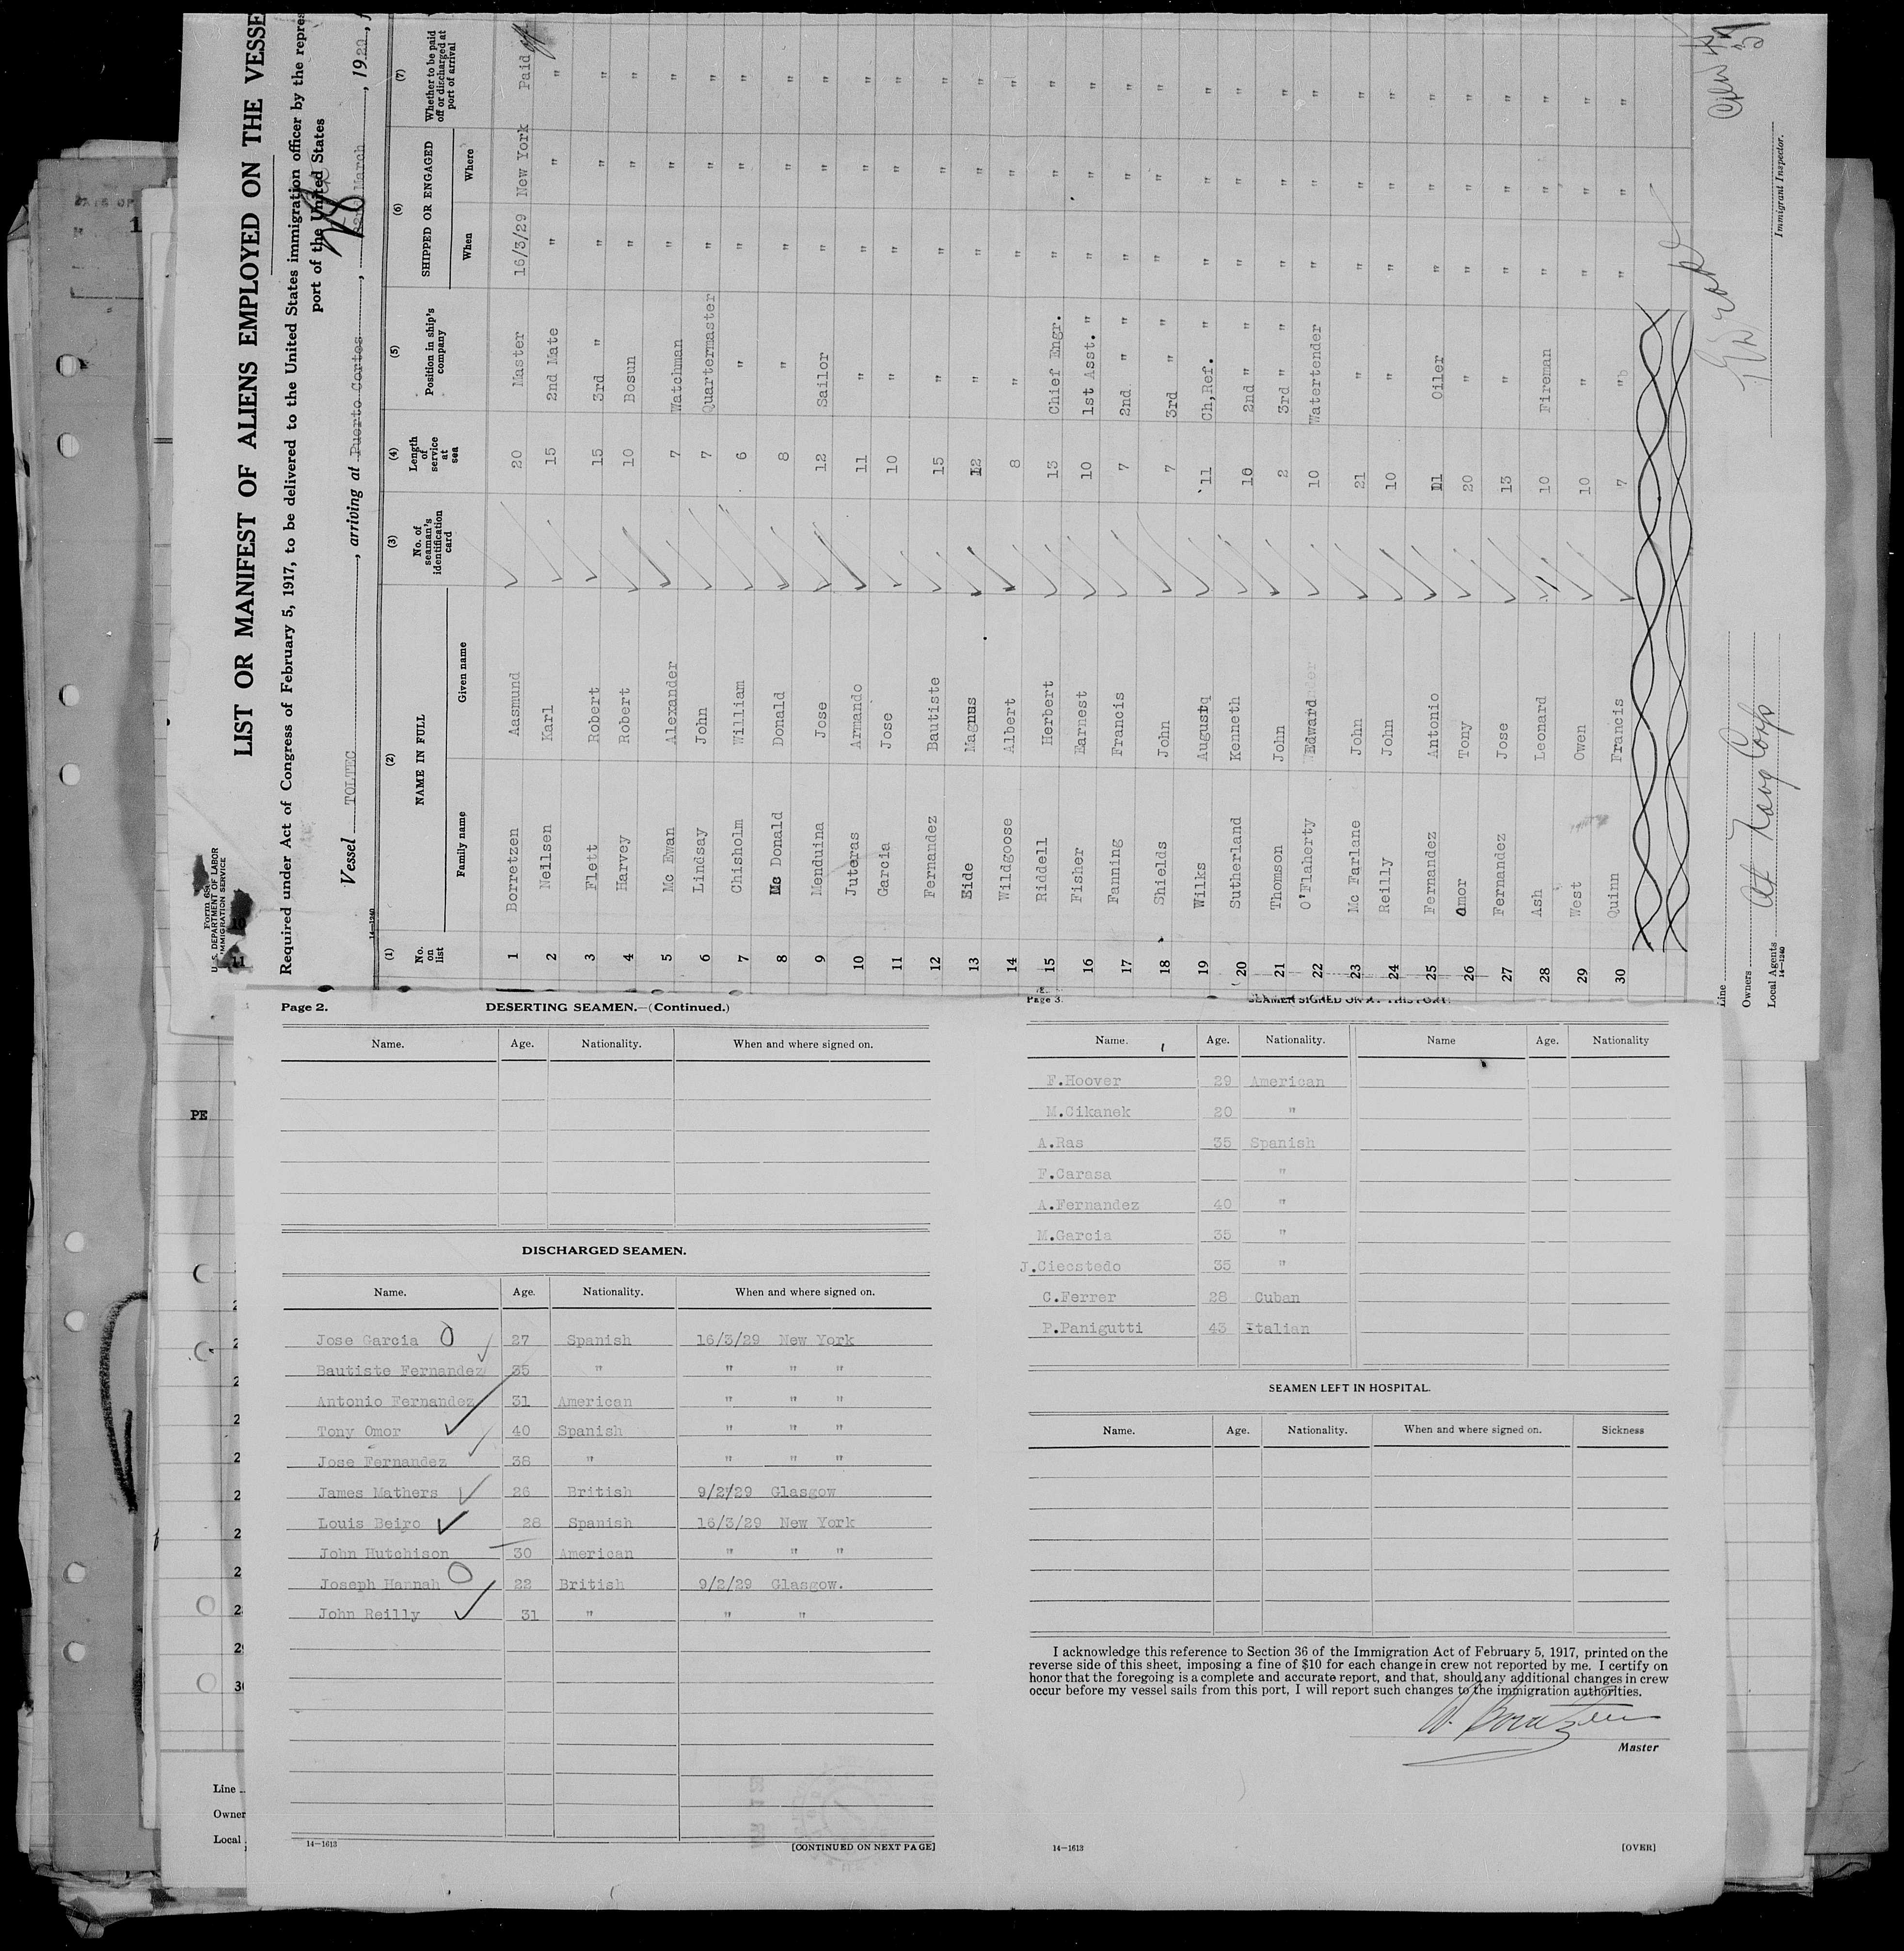 Form 680
U. S. DEPARTMENT OF LABOR
IMMIGRATION SERVICE
LIST OR MANIFEST OF ALIENS EMPLOYED ON THE VESSE
Required under Act of Congress of February 5, 1917, to be delivered to the United States immigration officer by the repres
port of the United States
Vessel TOLTEC, arriving at Puerto Cortes, March, 1929,
14—1240
(1) (2) (3) (4) (5) (6) (7)
No. on list NAME IN FULL Family name Given name No. of seaman's identification card Length of service at sea Position in ship's company SHIPPED OR ENGAGED When Where Whether to be paid off or discharged at port of arrival
1 Borretzen Aasmund 20 Master 16/3/29 New York Paid off
2 Neilsen Karl 15 2nd Mate " " "
3 Flett Robert 15 3rd " " " "
4 Harvey Robert 10 Bosun " " "
5 Mc Ewan Alexander 7 Watchman " " "
6 Lindsay John 7 Quartermaster " " "
7 Chisholm William 6 " " " "
8 Mc Donald Donald 8 " " " "
9 Menduina Jose 12 Sailor " " "
10 Juteras Armando 11 " " " "
11 Garcia Jose 10 " " " "
12 Fernandez Bautiste 15 " " " "
13 Eide Magnus 12 " " " "
14 Wildgoose Albert 8 " " " "
15 Riddell Herbert 13 Chief Engr. " " "
16 Fisher Earnest 10 1st Asst. " " " "
17 Fanning Francis 7 2nd " " " " "
18 Shields John 7 3rd " " " " "
19 Wilks Augustq 11 Ch,Ref. " " " "
20 Sutherland Kenneth 10 2nd " " " " "
21 Thomson John 2 3rd " " " " "
22 O'Flaherty Edward 10 Watertender " " "
23 Mc Farlane John 21 " " " "
24 Reilly John 10 " " " "
25 Fernandez Antonio 11 Oiler " " "
26 Omor Tony 20 " " " "
27 Fernandez Jose 13 " " " "
28 Ash Leonard 10 Fireman " " "
29 West Owen 10 " " " "
30 Quinn Francis 7 " " " "
Line
Owners
Local Agents
14—1240
Immigrant Inspector.
Page 2. DESERTING SEAMEN.—(Continued.)
Name. Age. Nationality. When and where signed on.
DISCHARGED SEAMEN.
Name. Age. Nationality. When and where signed on.
Jose Garcia 27 Spanish 16/3/29 New York
Bautiste Fernandez 35 " " " "
Antonio Fernandez 31 American " " "
Tony Omor 40 Spanish " " "
Jose Fernandez 38 " " " "
James Mathers 26 British 9/2/29 Glasgow
Louis Beiro 28 Spanish 16/3/29 New York
John Hutchison 30 American " " "
Joseph Hannah 22 British 9/2/29 Glasgow.
John Reilly 31 " " "
14—1613 [CONTINUED ON NEXT PAGE]
Page 3. SEAMEN SIGNED ON AT THIS PORT.
Name. Age. Nationality. Name Age. Nationality
F.Hoover 29 American
M.Cikanek 20 "
A.Ras 35 Spanish
F.Carasa "
A.Fernandez 40 "
M.Garcia 35 "
J.Ciecstedo 35 "
C.Ferrer 28 Cuban
P.Panigutti 43 Italian
SEAMEN LEFT IN HOSPITAL.
Name. Age. Nationality. When and where signed on. Sickness
I acknowledge this reference to Section 36 of the Immigration Act of February 5, 1917, printed on the
reverse side of this sheet, imposing a fine of $10 for each change in crew not reported by me. I certify on
honor that the foregoing is a complete and accurate report, and that, should any additional changes in crew
occur before my vessel sails from this port, I will report such changes to the immigration authorities.
Master
14—1613 [OVER]
PE
Line
Owner
Local